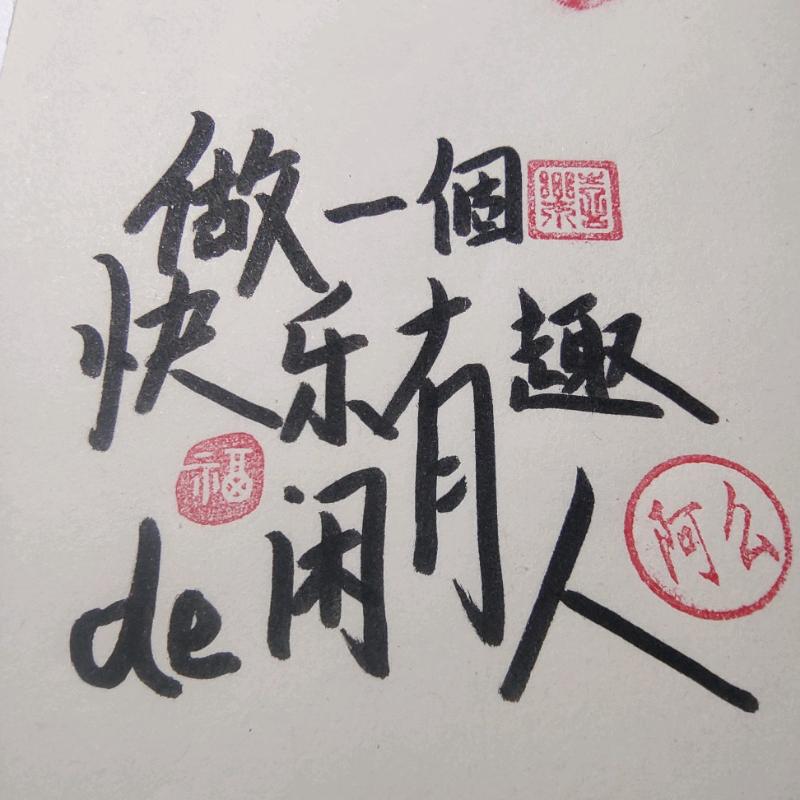 做一個
喜樂
快乐有趣
福
de闲人
阿么